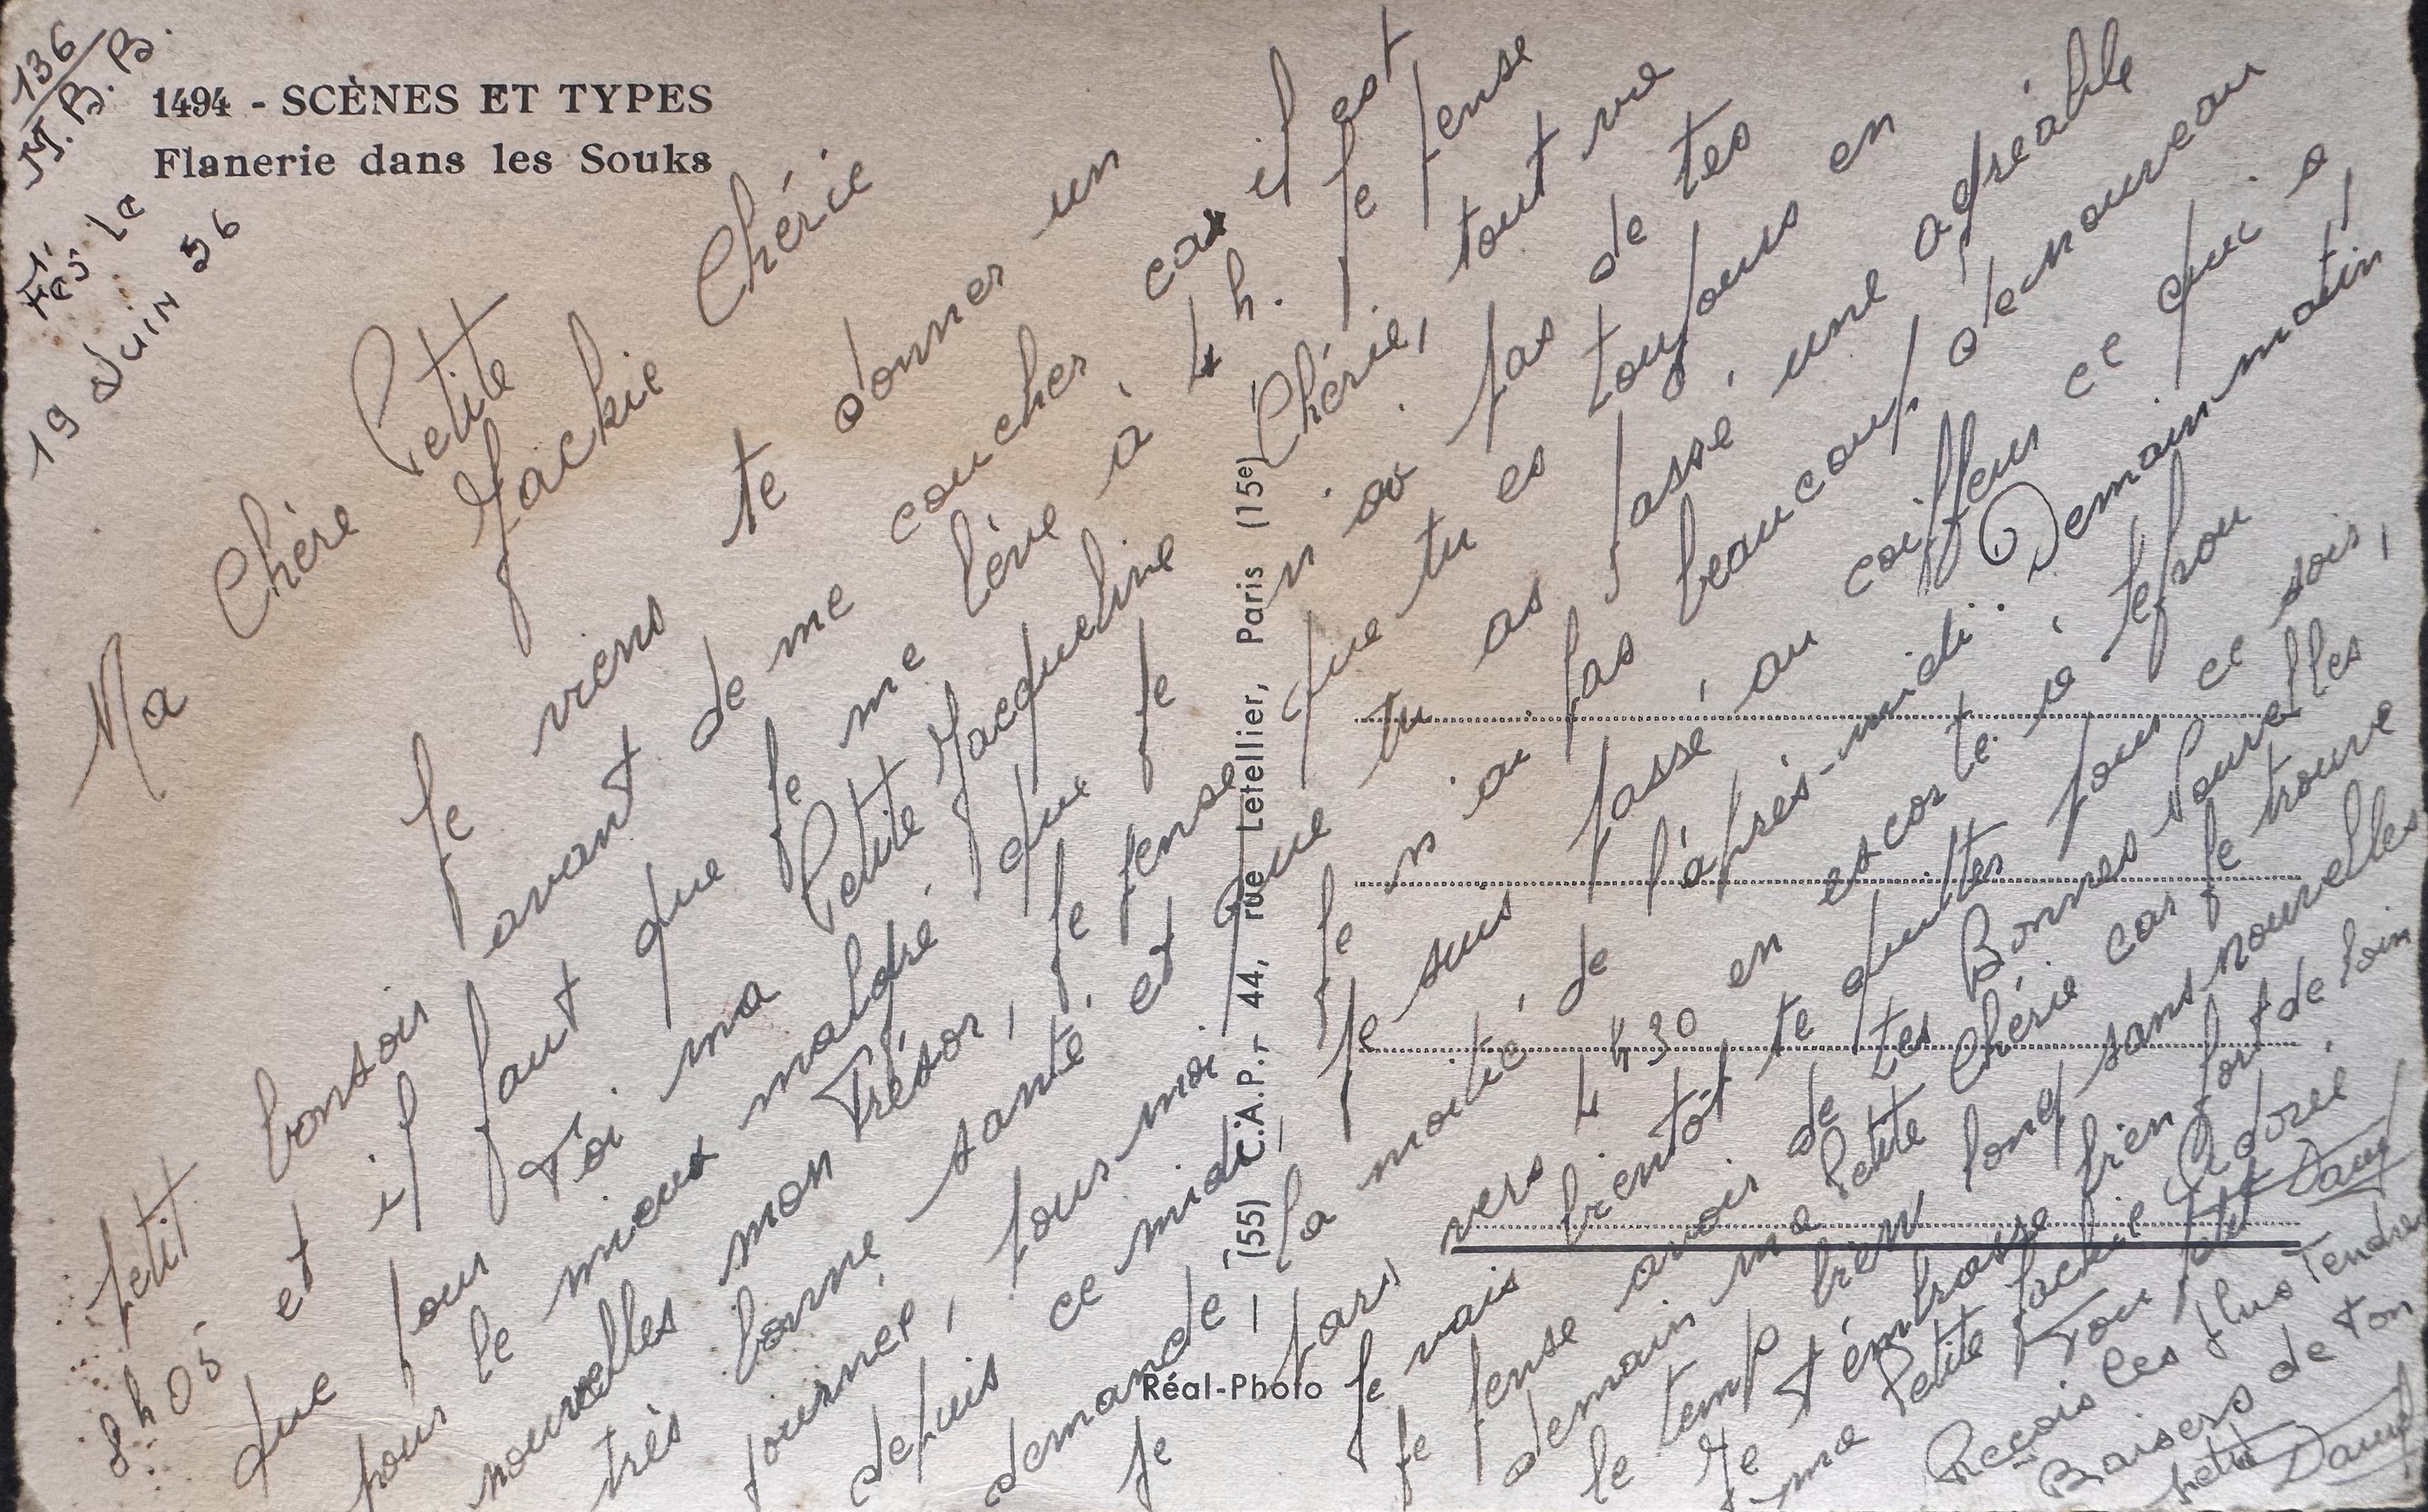 136
M.B.B.
Fès le
19 Juin 56
1494 - SCÈNES ET TYPES
Flanerie dans les Souks
Ma Chère Petite
Jackie Chérie
Je viens te donner un
petit bonsoir avant de me coucher car il est
8h05 et il faut que je me lève à 4h. Je pense
que pour Toi ma Petite Jacqueline Chérie, tout va
pour le mieux malgré que je n'ai pas de tes
nouvelles mon Trésor, je pense que tu es toujours en
très bonne santé et que tu as passé une agréable
journée, pour moi je n'ai pas beaucoup de nouveau
depuis ce midi, je suis passé au coiffeur ce qui a
demandé la moitié de l'après-midi. Demain matin,
je pars vers 4h30 en escorte à Sefrou
Je vais bientôt te quitter pour ce soir,
je pense avoir de tes Bonnes Nouvelles
demain ma Petite Chérie car je trouve
le temp bien long sans nouvelles
Je t'embrasse bien fort de loin
ma Petite Jackie Adorée
Ton petit Dany
Reçois les plus Tendres
Baisers de ton
petit Dany
Réal-Photo (55) C.A.P. 44, rue Letellier, Paris (15e)